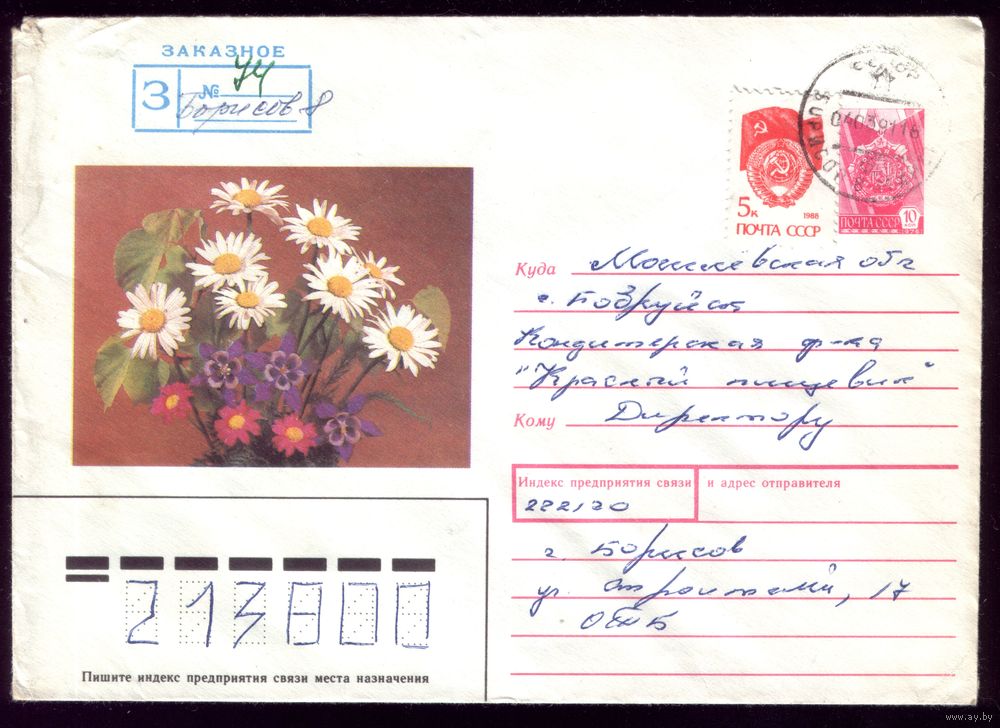 ЗАКАЗНОЕ
З № 74
Борисов 8
5к 1988
ПОЧТА СССР
ПОЧТА СССР 10 коп
Куда Могилевская обл
г. Бобруйск
Кондитерская ф-ка
"Красный пищевик"
Кому Директору
Индекс предприятия связи и адрес отправителя
222120
г. Борисов
ул Строителей, 17
ОТБ
213800
Пишите индекс предприятия связи места назначения
www.ay.by